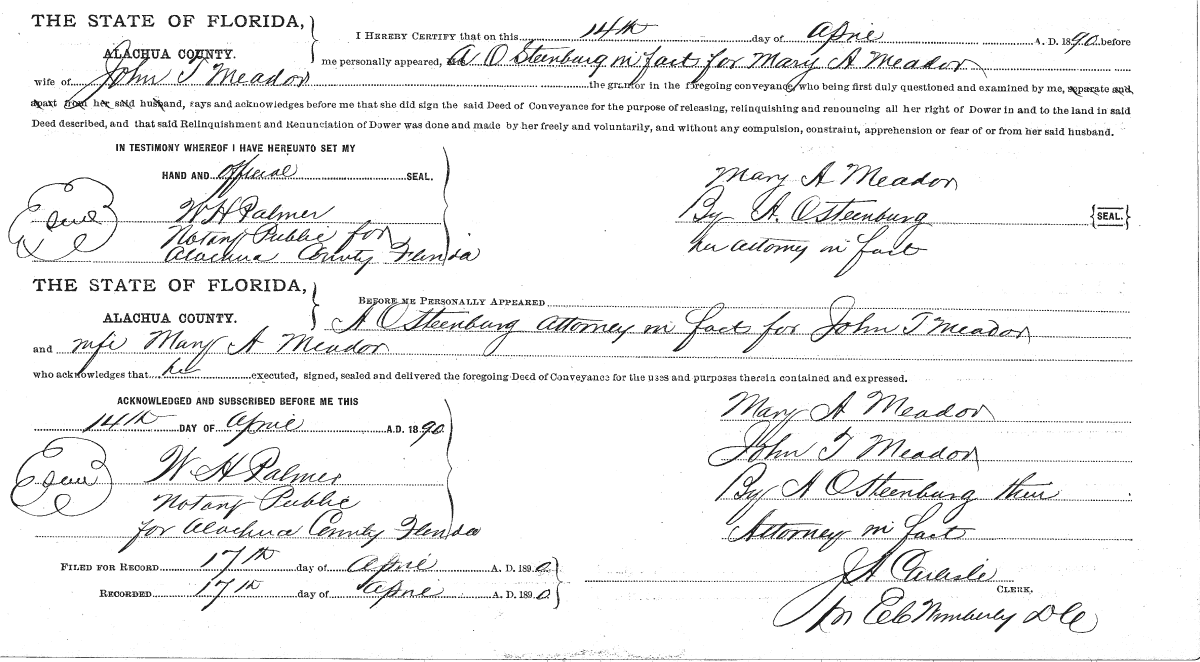 THE STATE OF FLORIDA,
ALACHUA COUNTY.
I HEREBY CERTIFY that on this 14th day of April A. D. 1890. before
me personally appeared, A. O Steenburg in fact for Mary A Meador
wife of John T Meador the grantor in the foregoing conveyance, who being first duly questioned and examined by me, separate and,
apart from her said husband, says and acknowledges before me that she did sign the said Deed of Conveyance for the purpose of releasing, relinquishing and renouncing all her right of Dower in and to the land in said
Deed described, and that said Relinquishment and Renunciation of Dower was done and made by her freely and voluntarily, and without any compulsion, constraint, apprehension or fear of or from her said husband.
IN TESTIMONY WHEREOF I HAVE HEREUNTO SET MY
HAND AND official SEAL.
Seal
W H Palmer
Notary Public for
Alachua County Florida
Mary A Meador
By A. O Steenburg {SEAL.}
her attorney in fact
THE STATE OF FLORIDA,
ALACHUA COUNTY.
BEFORE ME PERSONALLY APPEARED
A O Steenburg Attorney in fact for John T Meador
and wife Mary A Meador
who acknowledges that he executed, signed, sealed and delivered the foregoing Deed of Conveyance for the uses and purposes therein contained and expressed.
ACKNOWLEDGED AND SUBSCRIBED BEFORE ME THIS
14th DAY OF April A.D. 1890
Seal
W H Palmer
Notary Public
for Alachua County Florida
Mary A Meador
John T Meador
By A O Steenburg their
Attorney in fact
FILED FOR RECORD 17th day of April A. D. 1890.
RECORDED 17th day of April A. D. 1890.
J A Carlisle
CLERK.
Wimberly D C